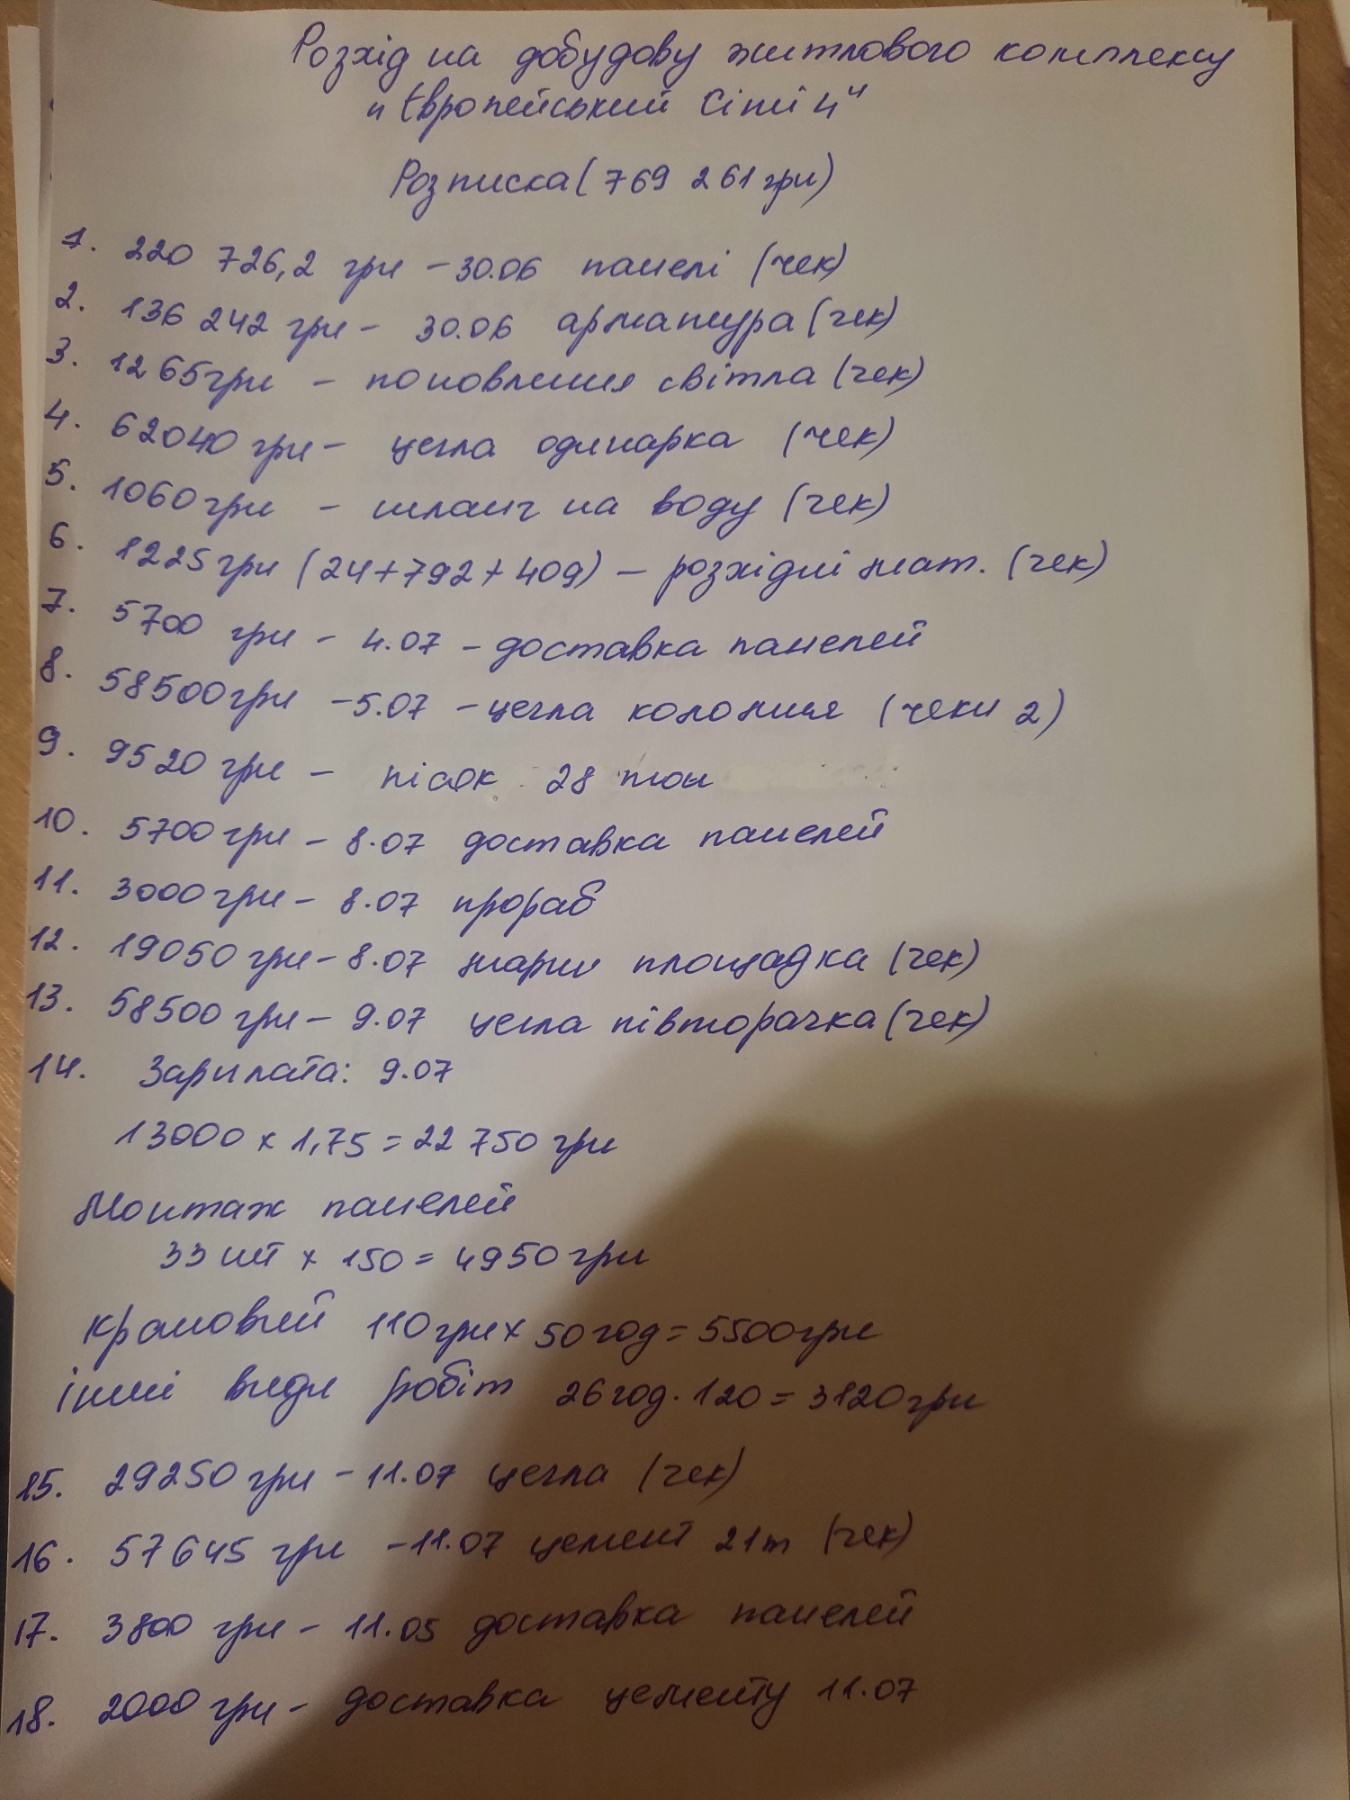 Розхід на добудову житлового комплексу
"Європейський Сіті 4"
Розписка (769 261 грн)
1. 220 726,2 грн - 30.06 панелі (чек)
2. 136 242 грн - 30.06 арматура (чек)
3. 1265 грн - поновлення світла (чек)
4. 62040 грн - цегла одинарка (чек)
5. 1060 грн - шланг на воду (чек)
6. 1225 грн (24+792+409) - розхідні мат. (чек)
7. 5700 грн - 4.07 - доставка панелей
8. 58500 грн - 5.07 - цегла колония (чеки 2)
9. 9520 грн - пісок 28 тон
10. 5700 грн - 8.07 доставка панелей
11. 3000 грн - 8.07 прораб
12. 19050 грн - 8.07 марш площадка (чек)
13. 58500 грн - 9.07 цегла півторачка (чек)
14. Зарплата: 9.07
13000 x 1,75 = 22 750 грн
Монтаж панелей
33 шт x 150 = 4950 грн
Крановый 110 грн x 50 год = 5500 грн
інші види робіт 26 год. 120 = 3120 грн
15. 29250 грн - 11.07 цегла (чек)
16. 57645 грн - 11.07 цемент 21т (чек)
17. 3800 грн - 11.05 доставка панелей
18. 2000 грн - доставка цементу 11.07